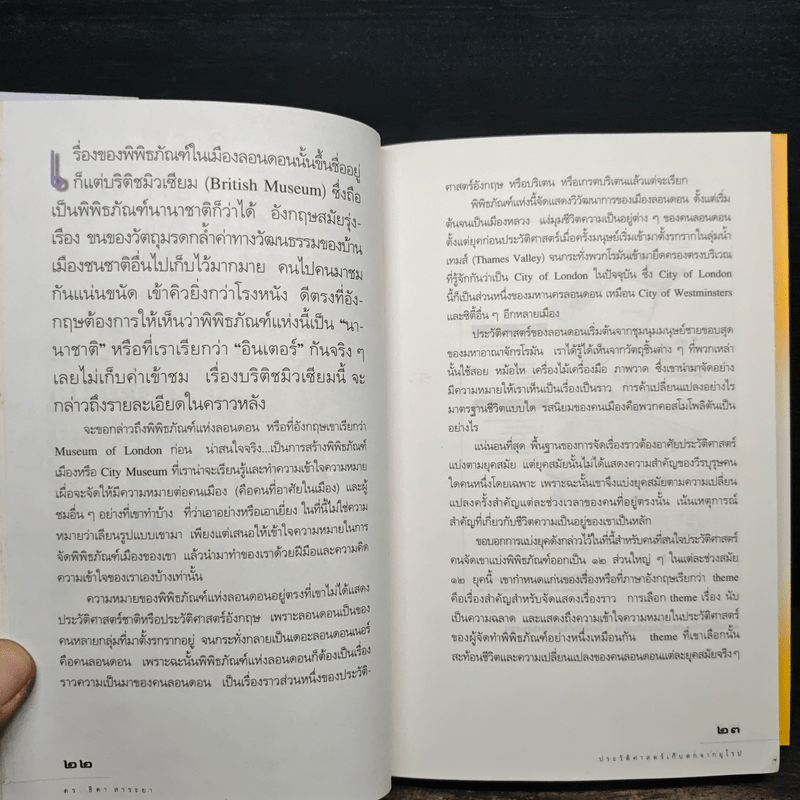 เรื่องของพิพิธภัณฑ์ในเมืองลอนดอนนั้นขึ้นชื่ออยู่
ก็แต่บริติชมิวเซียม (British Museum) ซึ่งถือ
เป็นพิพิธภัณฑ์นานาชาติก็ว่าได้ อังกฤษสมัยรุ่ง-
เรือง ขนของวัตถุมรดกล้ำค่าทางวัฒนธรรมของบ้าน
เมืองชนชาติอื่นไปเก็บไว้มากมาย คนไปคนมาชม
กันแน่นขนัด เข้าคิวยิ่งกว่าโรงหนัง ดีตรงที่อัง-
กฤษต้องการให้เห็นว่าพิพิธภัณฑ์แห่งนี้เป็น “นา-
นาชาติ” หรือที่เราเรียกว่า “อินเตอร์” กันจริง ๆ
เลยไม่เก็บค่าเข้าชม เรื่องบริติชมิวเซียมนี้ จะ
กล่าวถึงรายละเอียดในคราวหลัง
จะขอกล่าวถึงพิพิธภัณฑ์แห่งลอนดอน หรือที่อังกฤษเขาเรียกว่า
Museum of London ก่อน น่าสนใจจริง...เป็นการสร้างพิพิธภัณฑ์
เมืองหรือ City Museum ที่เราน่าจะเรียนรู้และทำความเข้าใจความหมาย
เผื่อจะจัดให้มีความหมายต่อคนเมือง (คือคนที่อาศัยในเมือง) และผู้
ชมอื่น ๆ อย่างที่เขาทำบ้าง ที่ว่าเอาอย่างหรือเอาเยี่ยง ในที่นี้ไม่ใช่ความ
หมายว่าเลียนรูปแบบเขามา เพียงแต่เสนอให้เข้าใจความหมายในการ
จัดพิพิธภัณฑ์เมืองของเขา แล้วนำมาทำของเราด้วยฝีมือและความคิด
ความเข้าใจของเราเองบ้างเท่านั้น
ความหมายของพิพิธภัณฑ์แห่งลอนดอนอยู่ตรงที่เขาไม่ได้แสดง
ประวัติศาสตร์ชาติหรือประวัติศาสตร์อังกฤษ เพราะลอนดอนเป็นของ
คนหลายกลุ่มที่มาตั้งรกรากอยู่ จนกระทั่งกลายเป็นเดอะลอนดอนเนอร์
คือคนลอนดอน เพราะฉะนั้นพิพิธภัณฑ์แห่งลอนดอนก็ต้องเป็นเรื่อง
ราวความเป็นมาของคนลอนดอน เป็นเรื่องราวส่วนหนึ่งของประวัติ-
๒๒
ดร. ธิดา สาระยา
ศาสตร์อังกฤษ หรือบริเตน หรือเกรตบริเตนแล้วแต่จะเรียก
พิพิธภัณฑ์แห่งนี้จัดแสดงวิวัฒนาการของเมืองลอนดอน ตั้งแต่เริ่ม
ต้นจนเป็นเมืองหลวง แง่มุมชีวิตความเป็นอยู่ต่าง ๆ ของคนลอนดอน
ตั้งแต่ยุคก่อนประวัติศาสตร์เมื่อครั้งมนุษย์เริ่มเข้ามาตั้งรกรากในลุ่มน้ำ
เทมส์ (Thames Valley) จนกระทั่งพวกโรมันเข้ามายึดครองตรงบริเวณ
ที่รู้จักกันว่าเป็น City of London ในปัจจุบัน ซึ่ง City of London
นี้ก็เป็นส่วนหนึ่งของมหานครลอนดอน เหมือน City of Westminsters
และซิตี้อื่น ๆ อีกหลายเมือง
ประวัติศาสตร์ของลอนดอนเริ่มต้นจากชุมนุมมนุษย์ชายขอบสุด
ของมหาอาณาจักรโรมัน เราได้รู้ได้เห็นจากวัตถุชิ้นต่าง ๆ ที่พวกเหล่า
นั้นใช้สอย หม้อไห เครื่องไม้เครื่องมือ ภาพวาด ซึ่งเขานำมาจัดอย่าง
มีความหมายให้เราเห็นเป็นเรื่องเป็นราว การค้าเปลี่ยนแปลงอย่างไร
มาตรฐานชีวิตแบบใด รสนิยมของคนเมืองคือพวกคอสโมโพลิตันเป็น
อย่างไร
แน่นอนที่สุด พื้นฐานของการจัดเรื่องราวต้องอาศัยประวัติศาสตร์
แบ่งตามยุคสมัย แต่ยุคสมัยนั้นไม่ได้แสดงความสำคัญของวีรบุรุษคน
ใดคนหนึ่งโดยเฉพาะ เพราะฉะนั้นเขาจึงแบ่งยุคสมัยตามความเปลี่ยน
แปลงครั้งสำคัญแต่ละช่วงเวลาของคนที่อยู่ตรงนั้น เน้นเหตุการณ์
สำคัญที่เกี่ยวกับชีวิตความเป็นอยู่ของเขาเป็นหลัก
ขอบอกการแบ่งยุคดังกล่าวไว้ในที่นี้สำหรับคนที่สนใจประวัติศาสตร์
คนจัดเขาแบ่งพิพิธภัณฑ์ออกเป็น ๑๒ ส่วนใหญ่ ๆ ในแต่ละช่วงสมัย
๑๒ ยุคนี้ เขากำหนดแก่นของเรื่องหรือที่ภาษาอังกฤษเรียกว่า theme
คือเรื่องสำคัญสำหรับจัดแสดงเรื่องราว การเลือก theme เรื่อง นับ
เป็นความฉลาด และแสดงถึงความเข้าใจความหมายในประวัติศาสตร์
ของผู้จัดทำพิพิธภัณฑ์อย่างหนึ่งเหมือนกัน theme ที่เขาเลือกนั้น
สะท้อนชีวิตและความเปลี่ยนแปลงของคนลอนดอนแต่ละยุคสมัยจริง ๆ
๒๓
ประวัติศาสตร์เก็บตกจากยุโรป